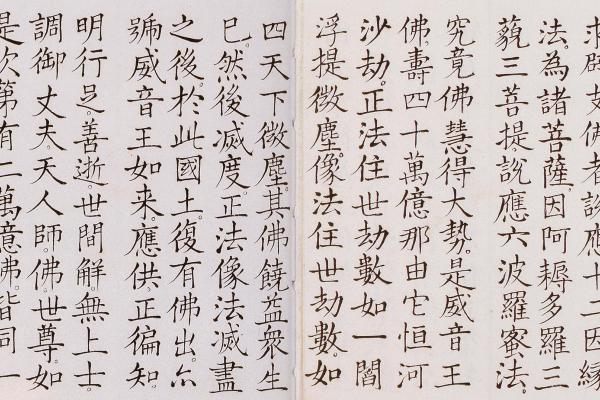 求辟支佛者說應十二因緣
法。為諸菩薩。因阿耨多羅三
藐三菩提。說應六波羅蜜法。
究竟佛慧得大勢。是威音王
佛。壽四十萬億那由它恒河
沙劫。正法住世劫數如一閻
浮提微塵。像法住世劫數。如
四天下微塵。其佛饒益眾生
已。然後滅度。正法像法滅盡
之後。於此國土。復有佛出。亦
號威音王如來。應供。正徧知。
明行足。善逝。世間解。無上士。
調御丈夫。天人師。佛。世尊。如
是次第有二萬億佛。皆同一